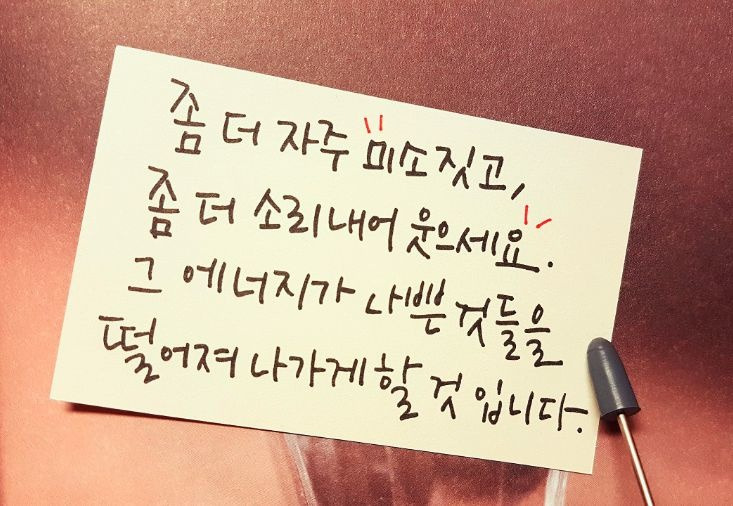 좀 더 자주 미소짓고,
좀 더 소리내어 웃으세요.
그 에너지가 나쁜 것들을
떨어져 나가게 할 것 입니다.